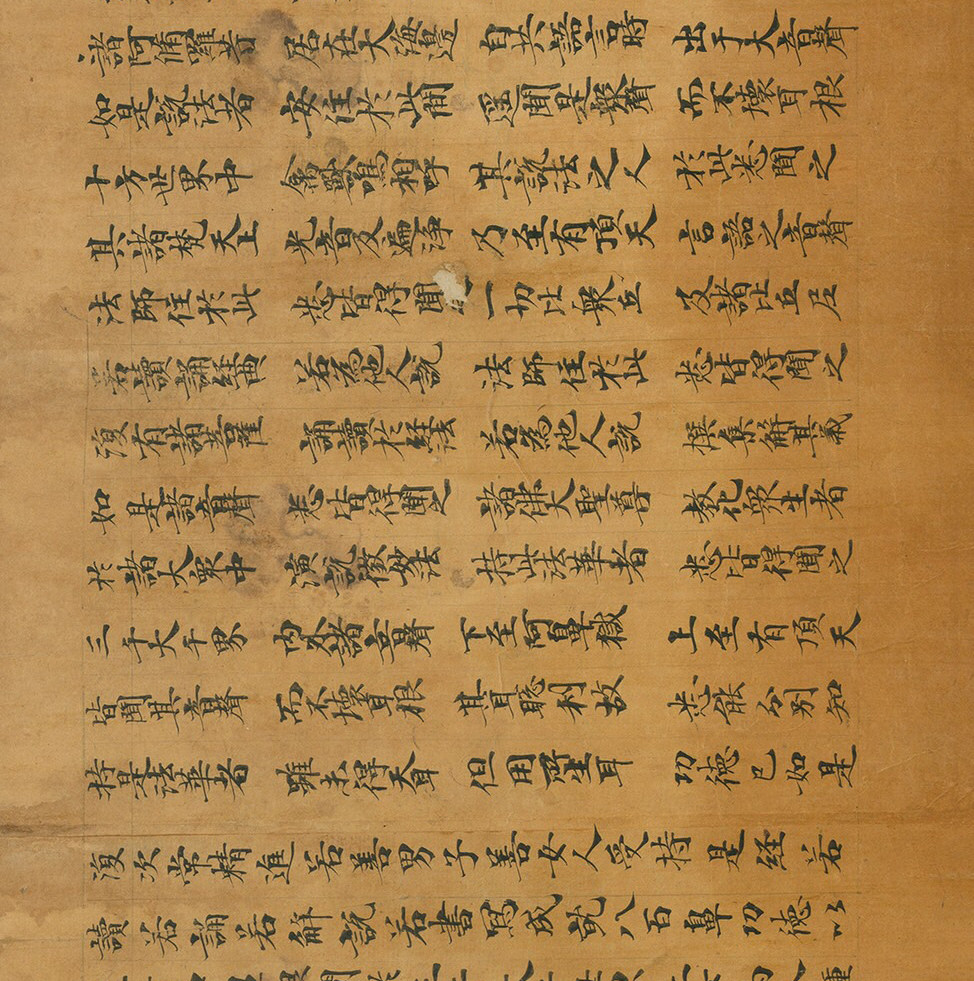 諸阿脩羅等 居在大海邊 自共語言時 出于大音聲
如是說法者 安住於此間 遙聞是衆聲 而不壞耳根
十方世界中 禽獸鳴相呼 其說法之人 於此悉聞之
其諸梵天上 光音及遍淨 乃至有頂天 言語之音聲
法師住於此 悉皆得聞 一切比衆丘 及諸比丘尼
若讀誦經典 若為他人說 法師住於此 悉皆得聞之
復有諸菩薩 誦讀於經法 若為他人說 撰集解其義
如是諸音聲 悉皆得聞之 諸佛大聖尊 教化衆生者
於諸大衆中 演說微妙法 持此法華者 悉皆得聞之
三千大千界 內外諸音聲 下至阿鼻獄 上至有頂天
皆聞其音聲 而不壞耳根 其耳聰利故 悉能分別知
持是法華者 雖未得天耳 但用所生耳 功德已如是
復次常精進若善男子善女人受持是經若
讀若誦若解說若書寫成就八百鼻功德以